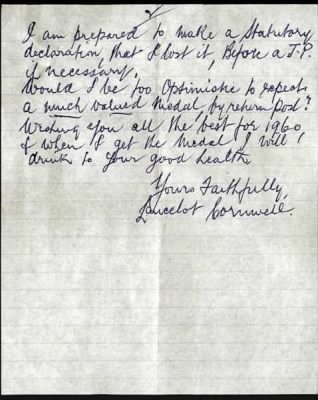 I am prepared to make a Statutory
declaration, that I lost it, Before a J.P.
if necessary.
Would I be too Optimistic to expect
a much valued Medal, by return Post?
Wishing you all the best for 1960,
& when I get the Medal I will,
drink to your good health
Yours Faithfully,
Lancelot Cornwell.